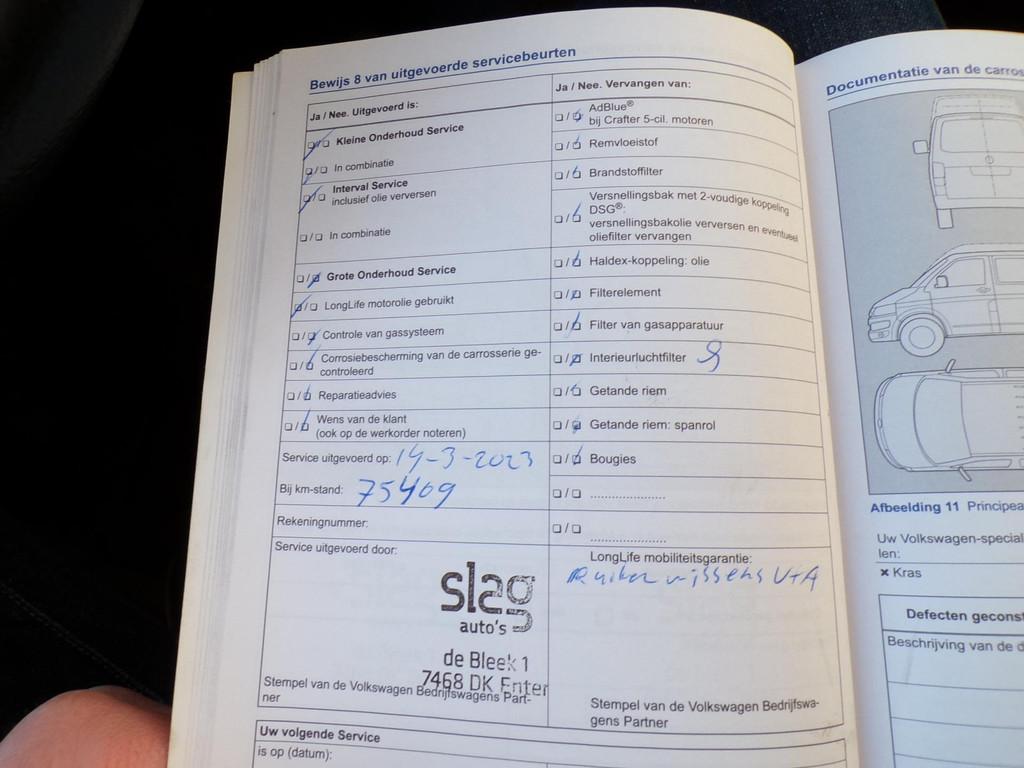 Bewijs 8 van uitgevoerde servicebeurten
Ja / Nee. Uitgevoerd is:
Kleine Onderhoud Service
In combinatie
Interval Service
inclusief olie verversen
In combinatie
Grote Onderhoud Service
LongLife motorolie gebruikt
Controle van gassysteem
Corrosiebescherming van de carrosserie ge-
controleerd
Reparatieadvies
Wens van de klant
(ook op de werkorder noteren)
Service uitgevoerd op: 14-3-2023
Bij km-stand: 75409
Rekeningnummer:
Service uitgevoerd door:
slag
auto's
de Bleek 1
7468 DK Enter
Stempel van de Volkswagen Bedrijfswagens Part-
ner
Ja / Nee. Vervangen van:
AdBlue®
bij Crafter 5-cil. motoren
Remvloeistof
Brandstoffilter
Versnellingsbak met 2-voudige koppeling
DSG®:
versnellingsbakolie verversen en eventueel
oliefilter vervangen
Haldex-koppeling: olie
Filterelement
Filter van gasapparatuur
Interieurluchtfilter
Getande riem
Getande riem: spanrol
Bougies
LongLife mobiliteitsgarantie:
Ruiten wissers V+A
Stempel van de Volkswagen Bedrijfswa-
gens Partner
Uw volgende Service
is op (datum):
Documentatie van de carros
Afbeelding 11 Principea
Uw Volkswagen-special
len:
× Kras
Defecten geconst
Beschrijving van de d